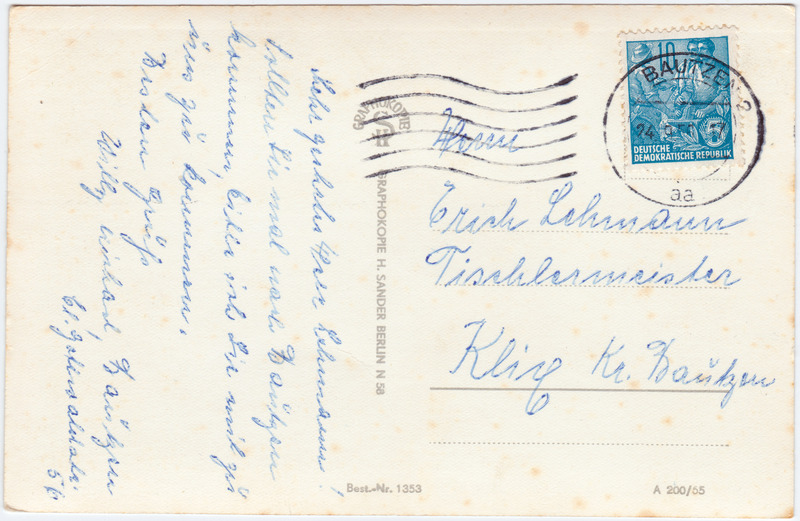 Sehr geehrter Herr Lehmann!
Sollten Sie mal nach Bautzen
kommen, bitte ich Sie mit zu
uns zu kommen.
Besten Gruß
Willy Bautzen
56
GRAPHOKOPIE
GRAPHOKOPIE H. SANDER BERLIN N 58
Best.-Nr. 1353
10
DEUTSCHE
DEMOKRATISCHE REPUBLIK
BAUTZEN 2
aa
Herrn
Erich Lehmann
Tischlermeister
Klix Kr. Bautzen
A 200/55